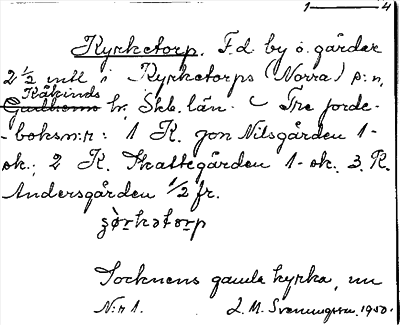 1——4
Kyrketorp. F.d. by o. gårdar
2 1/2 mtl i Kyrketorps (Norra) s:n,
Kåkinds
Gudhems hr, Skb. län. – Tre jorde-
-boksn:r: 1 K. gon Nilsgården 1-
sk.; 2 K. Skattegården 1- sk. 3. K.
Andersgården 1/2 fr.
Socknens gamla kyrka, nu
N:r 1. L. M. Svenungsson, 1950.